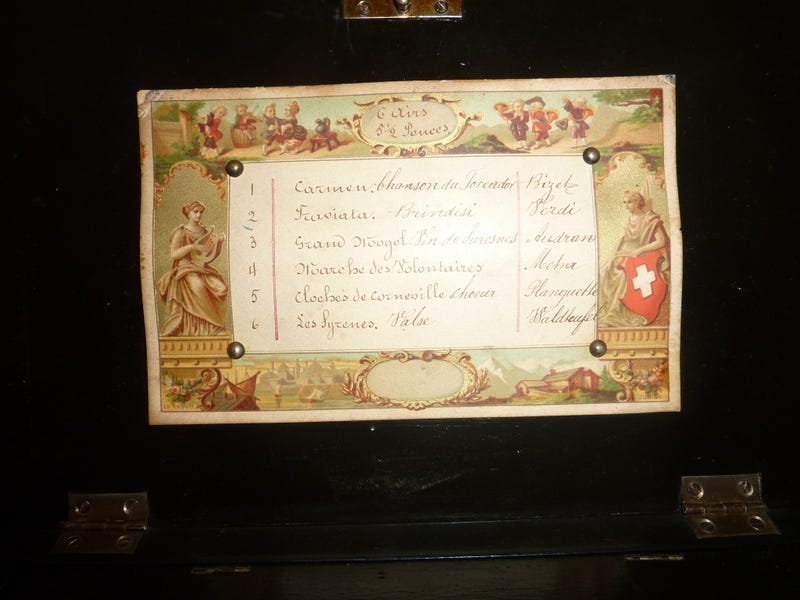 6 Airs
5½ Pouces
1 Carmen. Chanson du Toreador Bizet
2 Traviata. Brindisi Verdi
3 Grand Mogol Vin de Suresnes Audran
4 Marche des Volontaires Metra
5 Cloches de Corneville Choeur Planquette
6 Les Syrenes. Valse Waldteufel